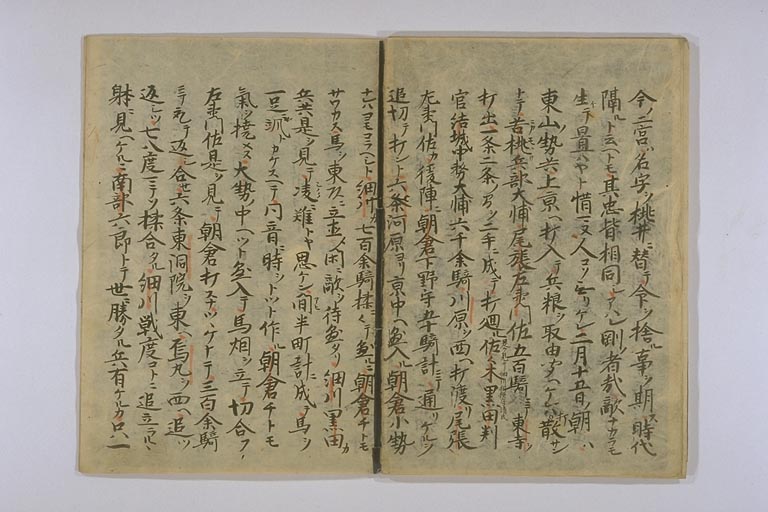 今ノ二宮ハ名字ヲ桃井ニ替テ命ヲ捨ル事ヲ期ス時代
隔ルト云ヘトモ其忠皆相同シ 剛者哉ト敵ナカラモ
惜マヌ人コソナカリケレ二月十五日ノ朝ハ
東山ノ勢共上京ヘ打入テ兵粮ヲ取由聞ヘケレハ散サン
トテ苦桃兵部大輔尾張左衛門佐五百余騎ニテ東寺ヲ
打出一条二条ノ間ヲ二手ニ成テ打廻ル佐々木黒田判
官結城中務大輔六千余騎川原ヲ西ヘ打渡リ尾張
左衛門佐カ後陣ニ朝倉下野守五十騎計ニテ通リケルヲ
追切テ打ント六条河原ヨリ京中ヘ懸入ル朝倉小勢
ナレハ 細川カ七百余騎 朝倉チトモ
サワカス馬ヲ東頭ニ立並ヘ閑ニ敵ヲ待懸タリ細川黒田カ
兵共是ヲ見テ凌難トヤ思ケン間半町計ニ成テ馬ヲ
一足 カケスヘテ同音ニ時ヲトツト作ル朝倉チトモ
気ヲ撓メス大勢ノ中ヘツト懸入テ馬烟ヲ立テ切合フ
左衛門佐是ヲ見テ朝倉打スナツヽケトテ三百余騎
ニテ 返シ合セ六条東洞院ヲ東ヘ烏丸ヲ西ヘ追ツ
返シツ七八度マテソ揉合タル細川戦度コトニ追立ラルヽ
躰ニ見ヘケルニ南部六郎トテ世ニ勝タル兵有ケルカ只一